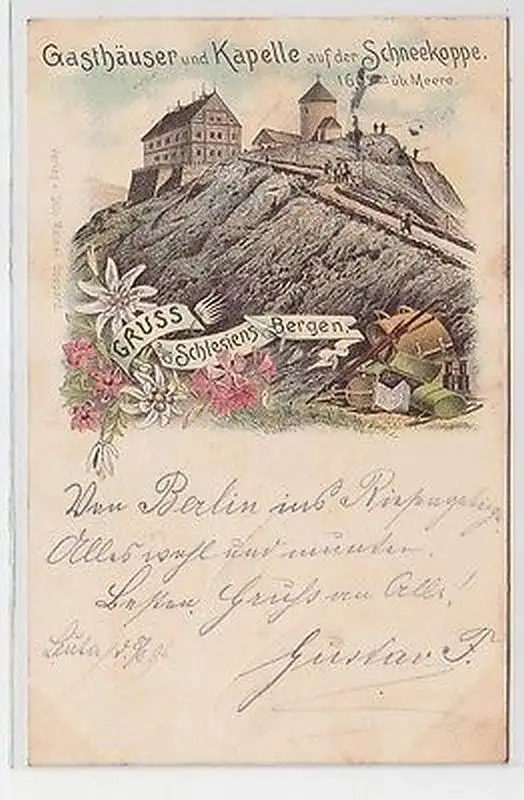 Gasthäuser und Kapelle auf der Schneekoppe.
üb. Meere.
GRUSS
a. Schlesiens Bergen.
Von Berlin ins Riesengebirge
Alles wohl und munter.
Besten Gruß an Alle!
Gustav F.